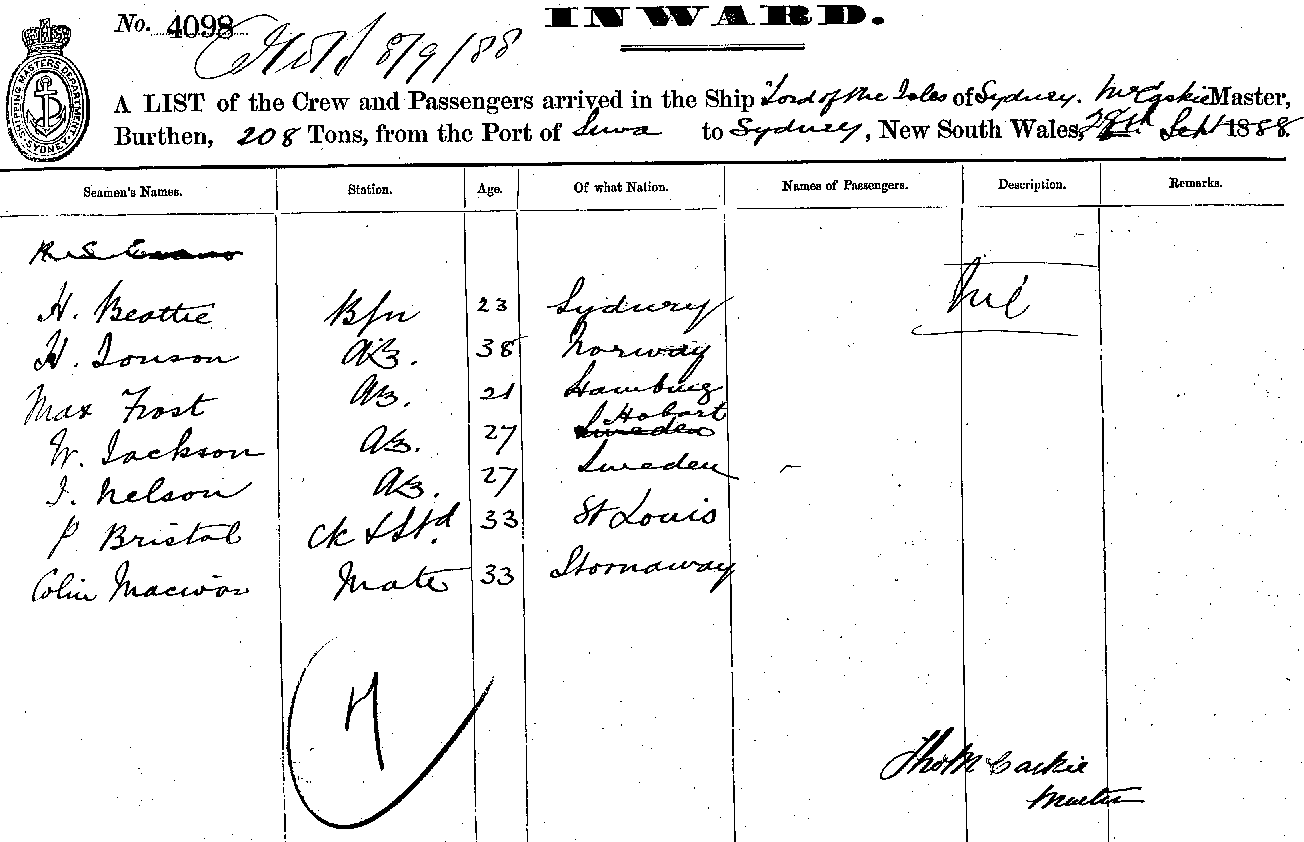 No. 4098
INWARD.
8/9/88
SHIPPING MASTERS DEPARTMENT
SYDNEY
A LIST of the Crew and Passengers arrived in the Ship Lord of the Isles of Sydney. McCaskie Master,
Burthen, 208 Tons, from the Port of Suva to Sydney, New South Wales, Sept 1888
Seamen's Names. Station. Age. Of what Nation. Names of Passengers. Description. Remarks.
R. S. Evans
H. Beattie Bsn 23 Sydney Nil
H. Jonson AB. 38 Norway
Max Frost AB. 21 Hamburg
Hobart
W. Jackson AB. 27 Sweden
J. Nelson AB. 27 Sweden
P Bristol Ck & Std 33 St Louis
Colin Macivor Mate 33 Stornaway
7
Thos McCaskie
Master